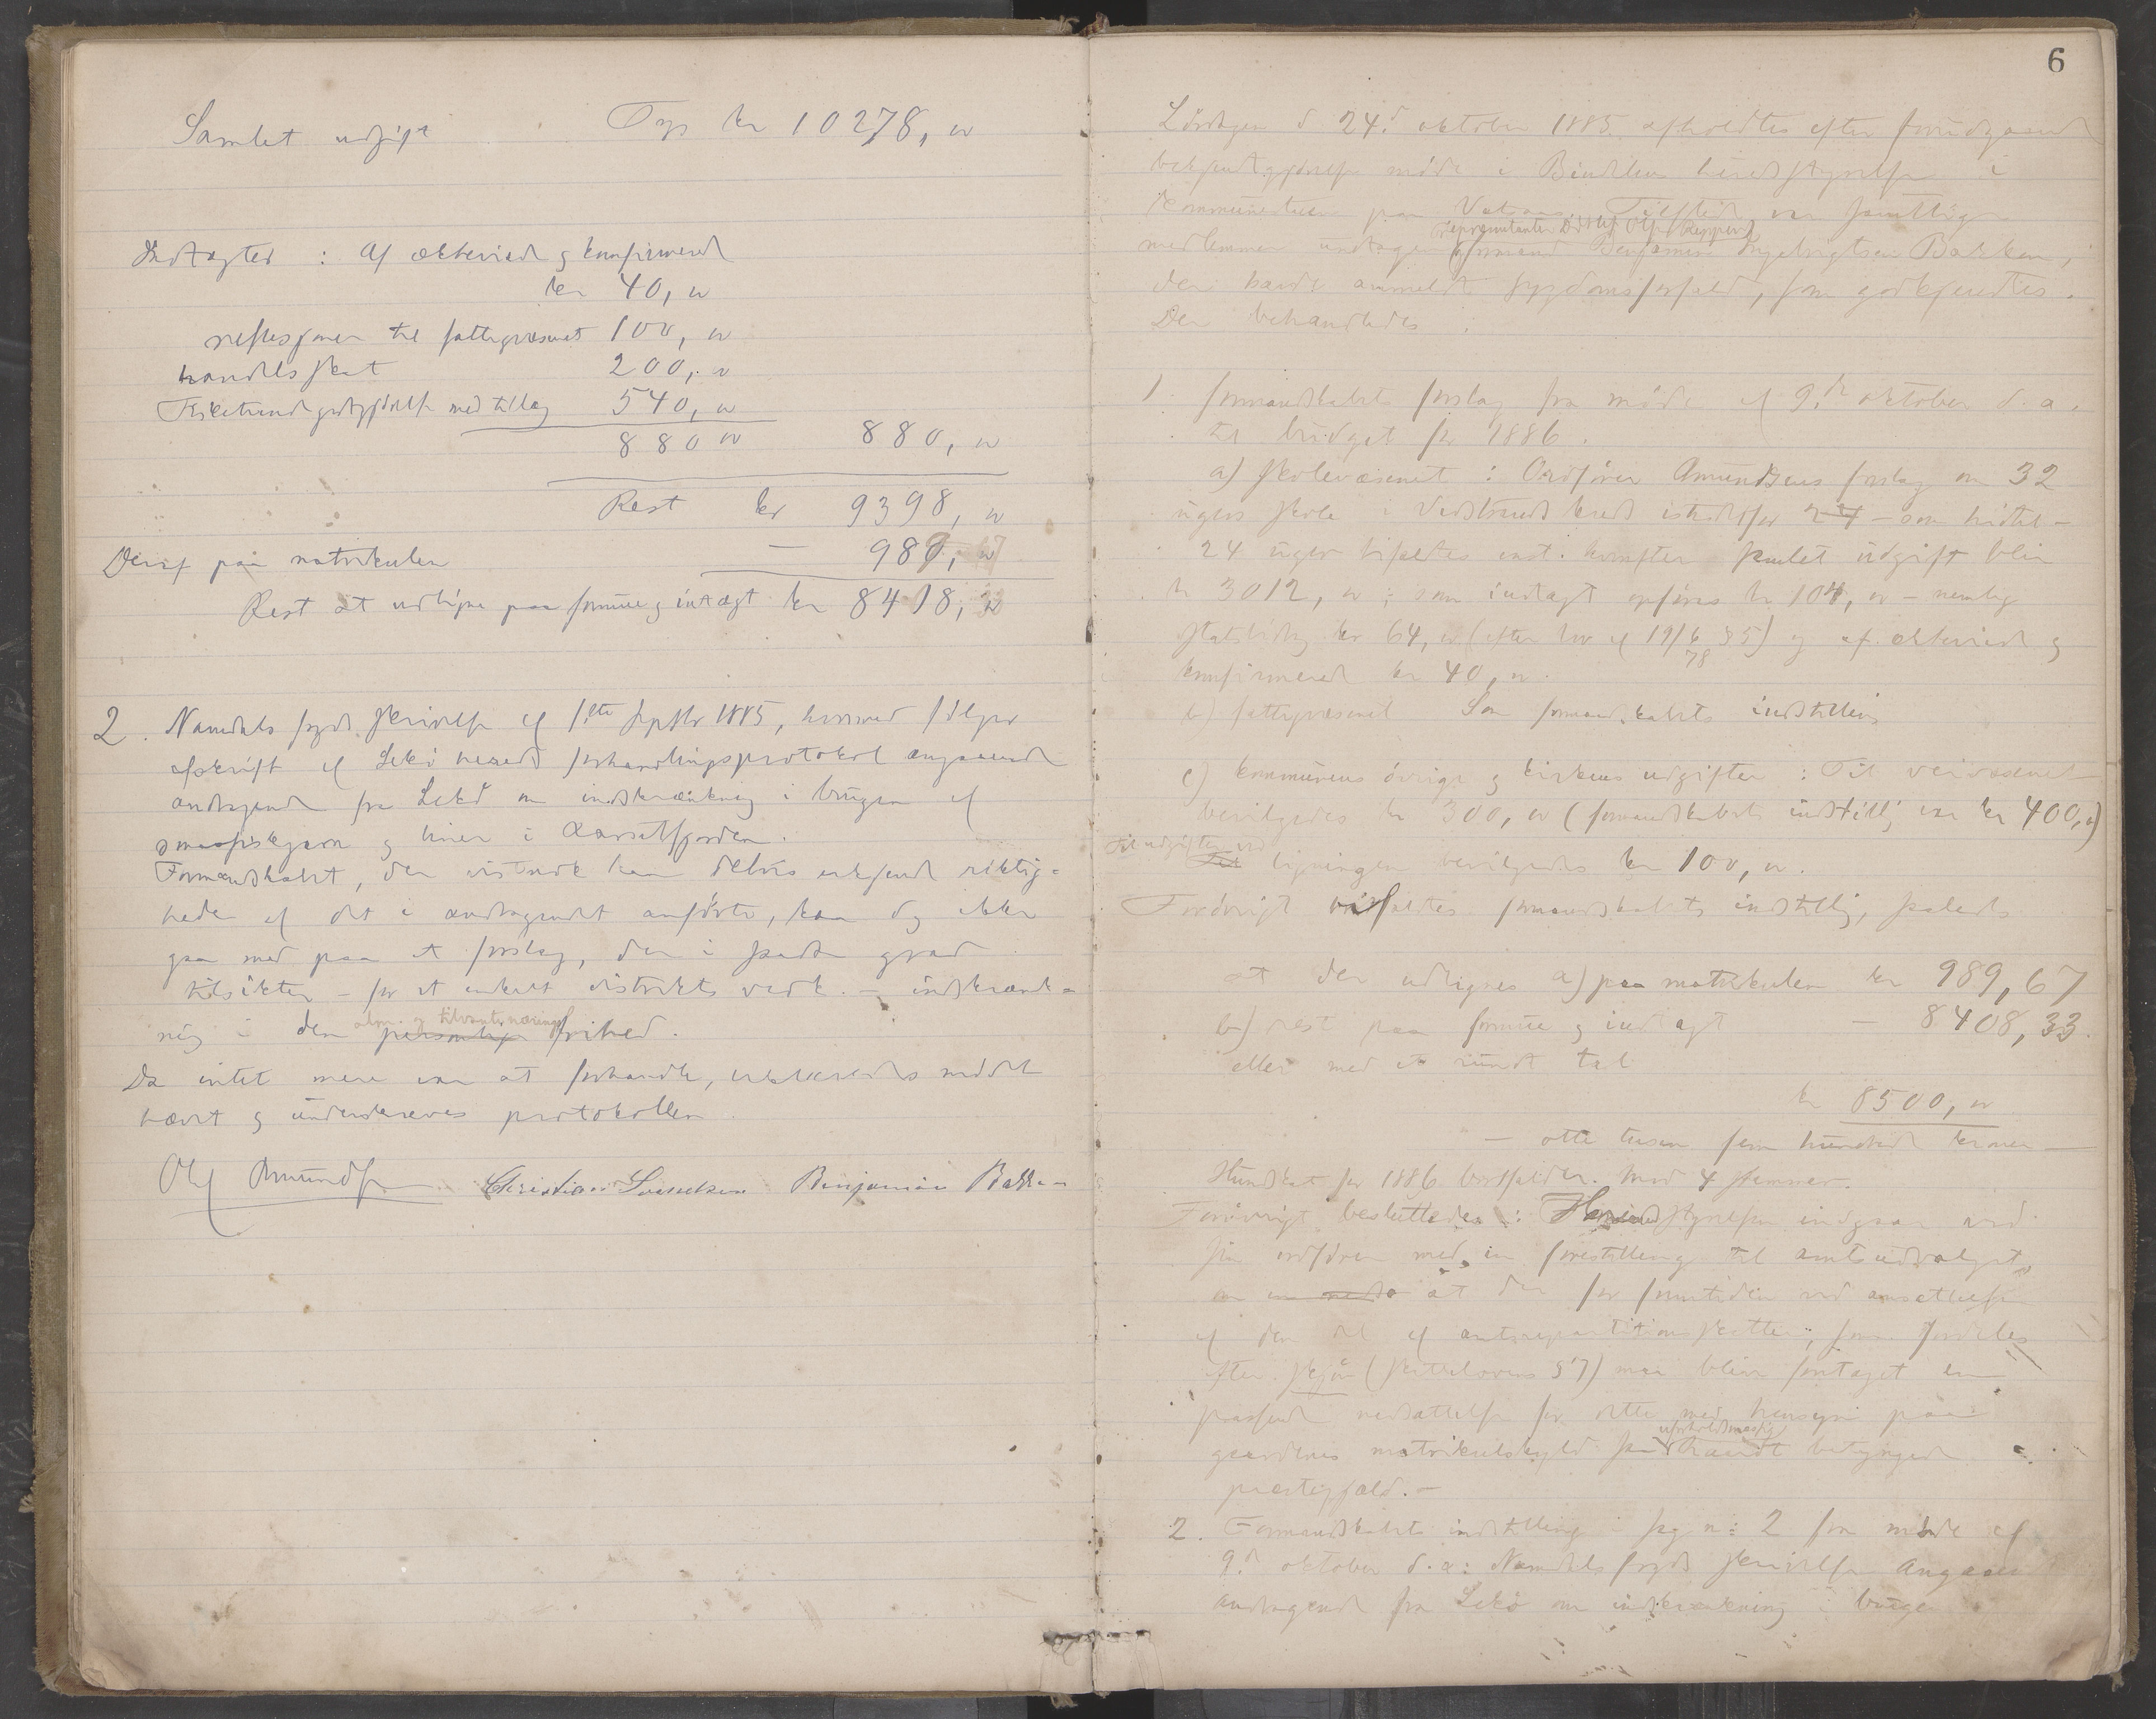 Samlet udgift Trsp kr 10278, "
Indtægter : Af ægteviede og konfirmerede
kr 40, "
refusjoner til fattigvæsenet 100, "
handelsskat 200, "
Tiketiende godtgjörelse med tillæg 540, "
880 " 880, "
Rest kr 9398, "
Deraf paa matrikulen — 989, 67
Rest at udligne paa formue og indtægt kr 8408, 33
2. Namdals fogds skrivelse af september 1885, hvormed fölger
afskrift af Lekö herreds forhandlingsprotokol angaaende
andragende fra Lekö om indskrænkning i brugen af
smaafiskgarn og liner i Aarsetfjorden.
Formandskabet, der vistnok kan delvis erkjende riktig-
heden af det i andragendet anförte, kan dog ikke
gaa med paa et forslag, der i saadan grad
tilsikter – for et enkelt distrikts vedk. – indskrænk-
alm. og tilvante nærings
ning i den personlige frihed.
Da intet mere var at forhandle, erklæredes mödet
hævet og underskreves protokollen.
Olaf Amundsen Christian Svendsen Benjamin Bakken
6
Lördagen d. 24de oktober 1885 afholdtes efter forudgaaende
bekjendtgjörelse möde i Bindalens herredsstyrelse i
Kommunelokalet paa Vatnaas. Tilstede var samtlige
repræsentanter Olsen Reppen
medlemmer undtagen formand Benjamin Ingebrigtsen Bakken,
der havde anmeldt sygdomsforfald, som godkjendtes.
Der behandledes :
1. formandskabets forslag fra möde af 9de oktober d. a.
til budget for 1886.
a) skolevæsenet : Ordförer Amundsens forslag om 32
ugers skole i Vedstrand kreds istedetfor 24 – som hidtil –
24 uger bifaldtes enst. hvorefter samlet udgift blir
kr 3012, " ; som indtægt opföres kr 104, " – nemlig
statsbidrag kr 64, " (efter lov af 19/6 78 § 5) og af ægteviede og
konfirmerede kr 40, ".
b) fattigvæsenet Som formandskabets indstilling
c) kommunens övrige og kirkens udgifter : Til veivæsenet
bevilgedes kr 300, " (formandskabets indstilling var kr 400, ")
Til udgifter ved
Til ligningen bevilgedes kr 100, ".
Forövrigt bifaldtes formandskabets indstilling, saaledes
at der udlignes a) paa matrikulen kr 989,67
b) rest paa formue og indtægt — 8408,33.
eller med et rundt tal
kr 8500, "
— otte tusen fem hundrede kroner —
Hundskat for 1886 bortfalder. Mod 4 stemmer.
Forövrigt besluttedes : Herredsstyrelsen indgaar ved
sin ordförer med en forestilling til amtsudvalget,
om at der for fremtiden ved ansættelsen
af den del af amtsrepartitionsskatten, som fordeles
efter skjön (skattelovens § 7) maa blive foretaget en
passende nedsættelse for dette med hensyn paa
uforholdsmæssig
gaardenes matrikulskyld saa haardt betyngede
prestegjæld. –
2. Formandskabets indstilling i sag n: 2 fra möde af
9de oktober d. a: Namdals fogds skrivelse angaaende
andragende fra Lekö om indskrænkning i brugen